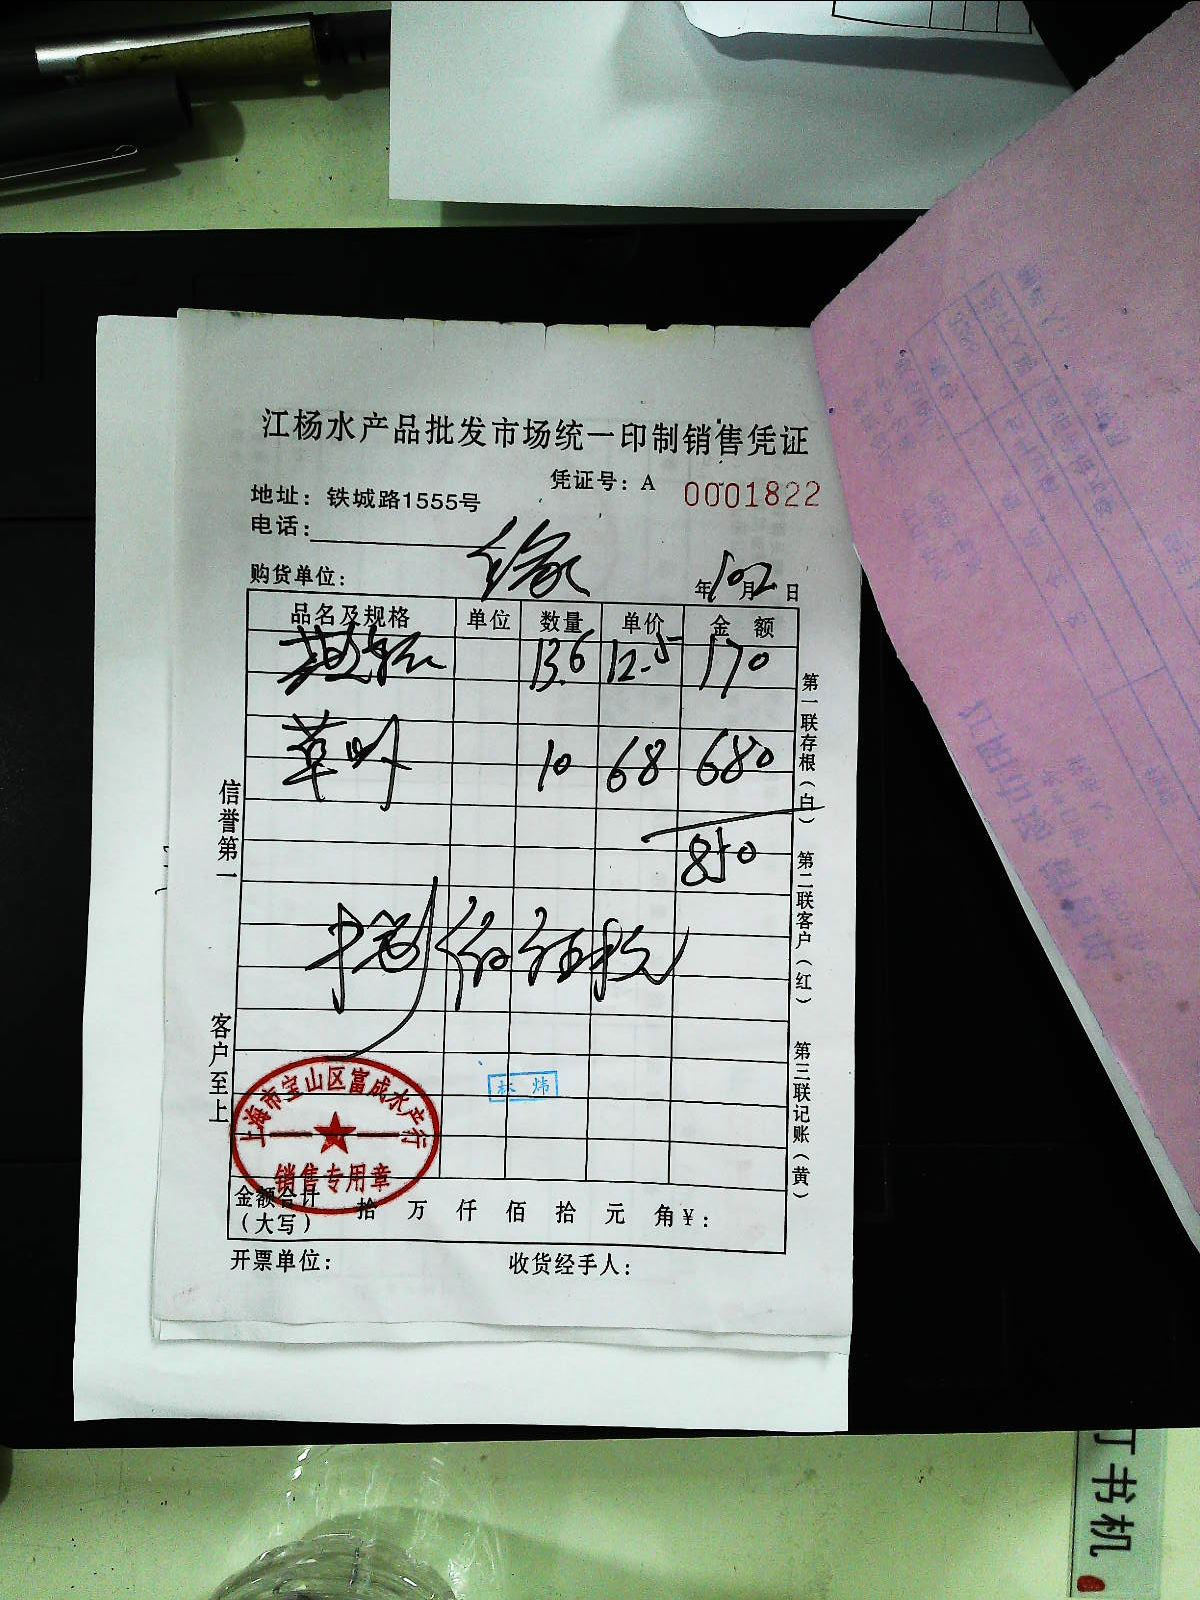 江杨水产品批发市场统一印制销售凭证
凭证号：A 0001822
地址：铁城路1555号
电话：
购货单位： 年10月2日
品名及规格 单位 数量 单价 金额
13.6 12.5 170
草 10 68 680
850
信誉第一
客户至上
第一联存根（白）
第二联客户（红）
第三联记账（黄）
上海市宝山区富成水产行
销售专用章
金额合计（大写） 拾 万 仟 佰 拾 元 角 ¥：
开票单位： 收货经手人：
订书机